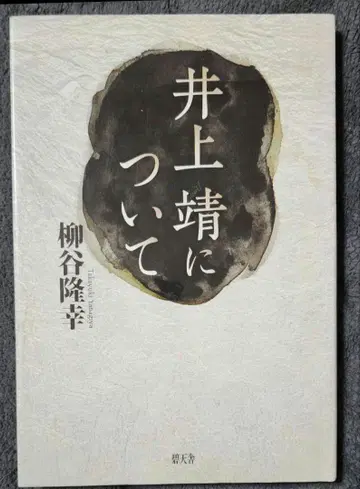 井上靖に
ついて
柳谷隆幸
Takayuki Yanagiya
碧天舎